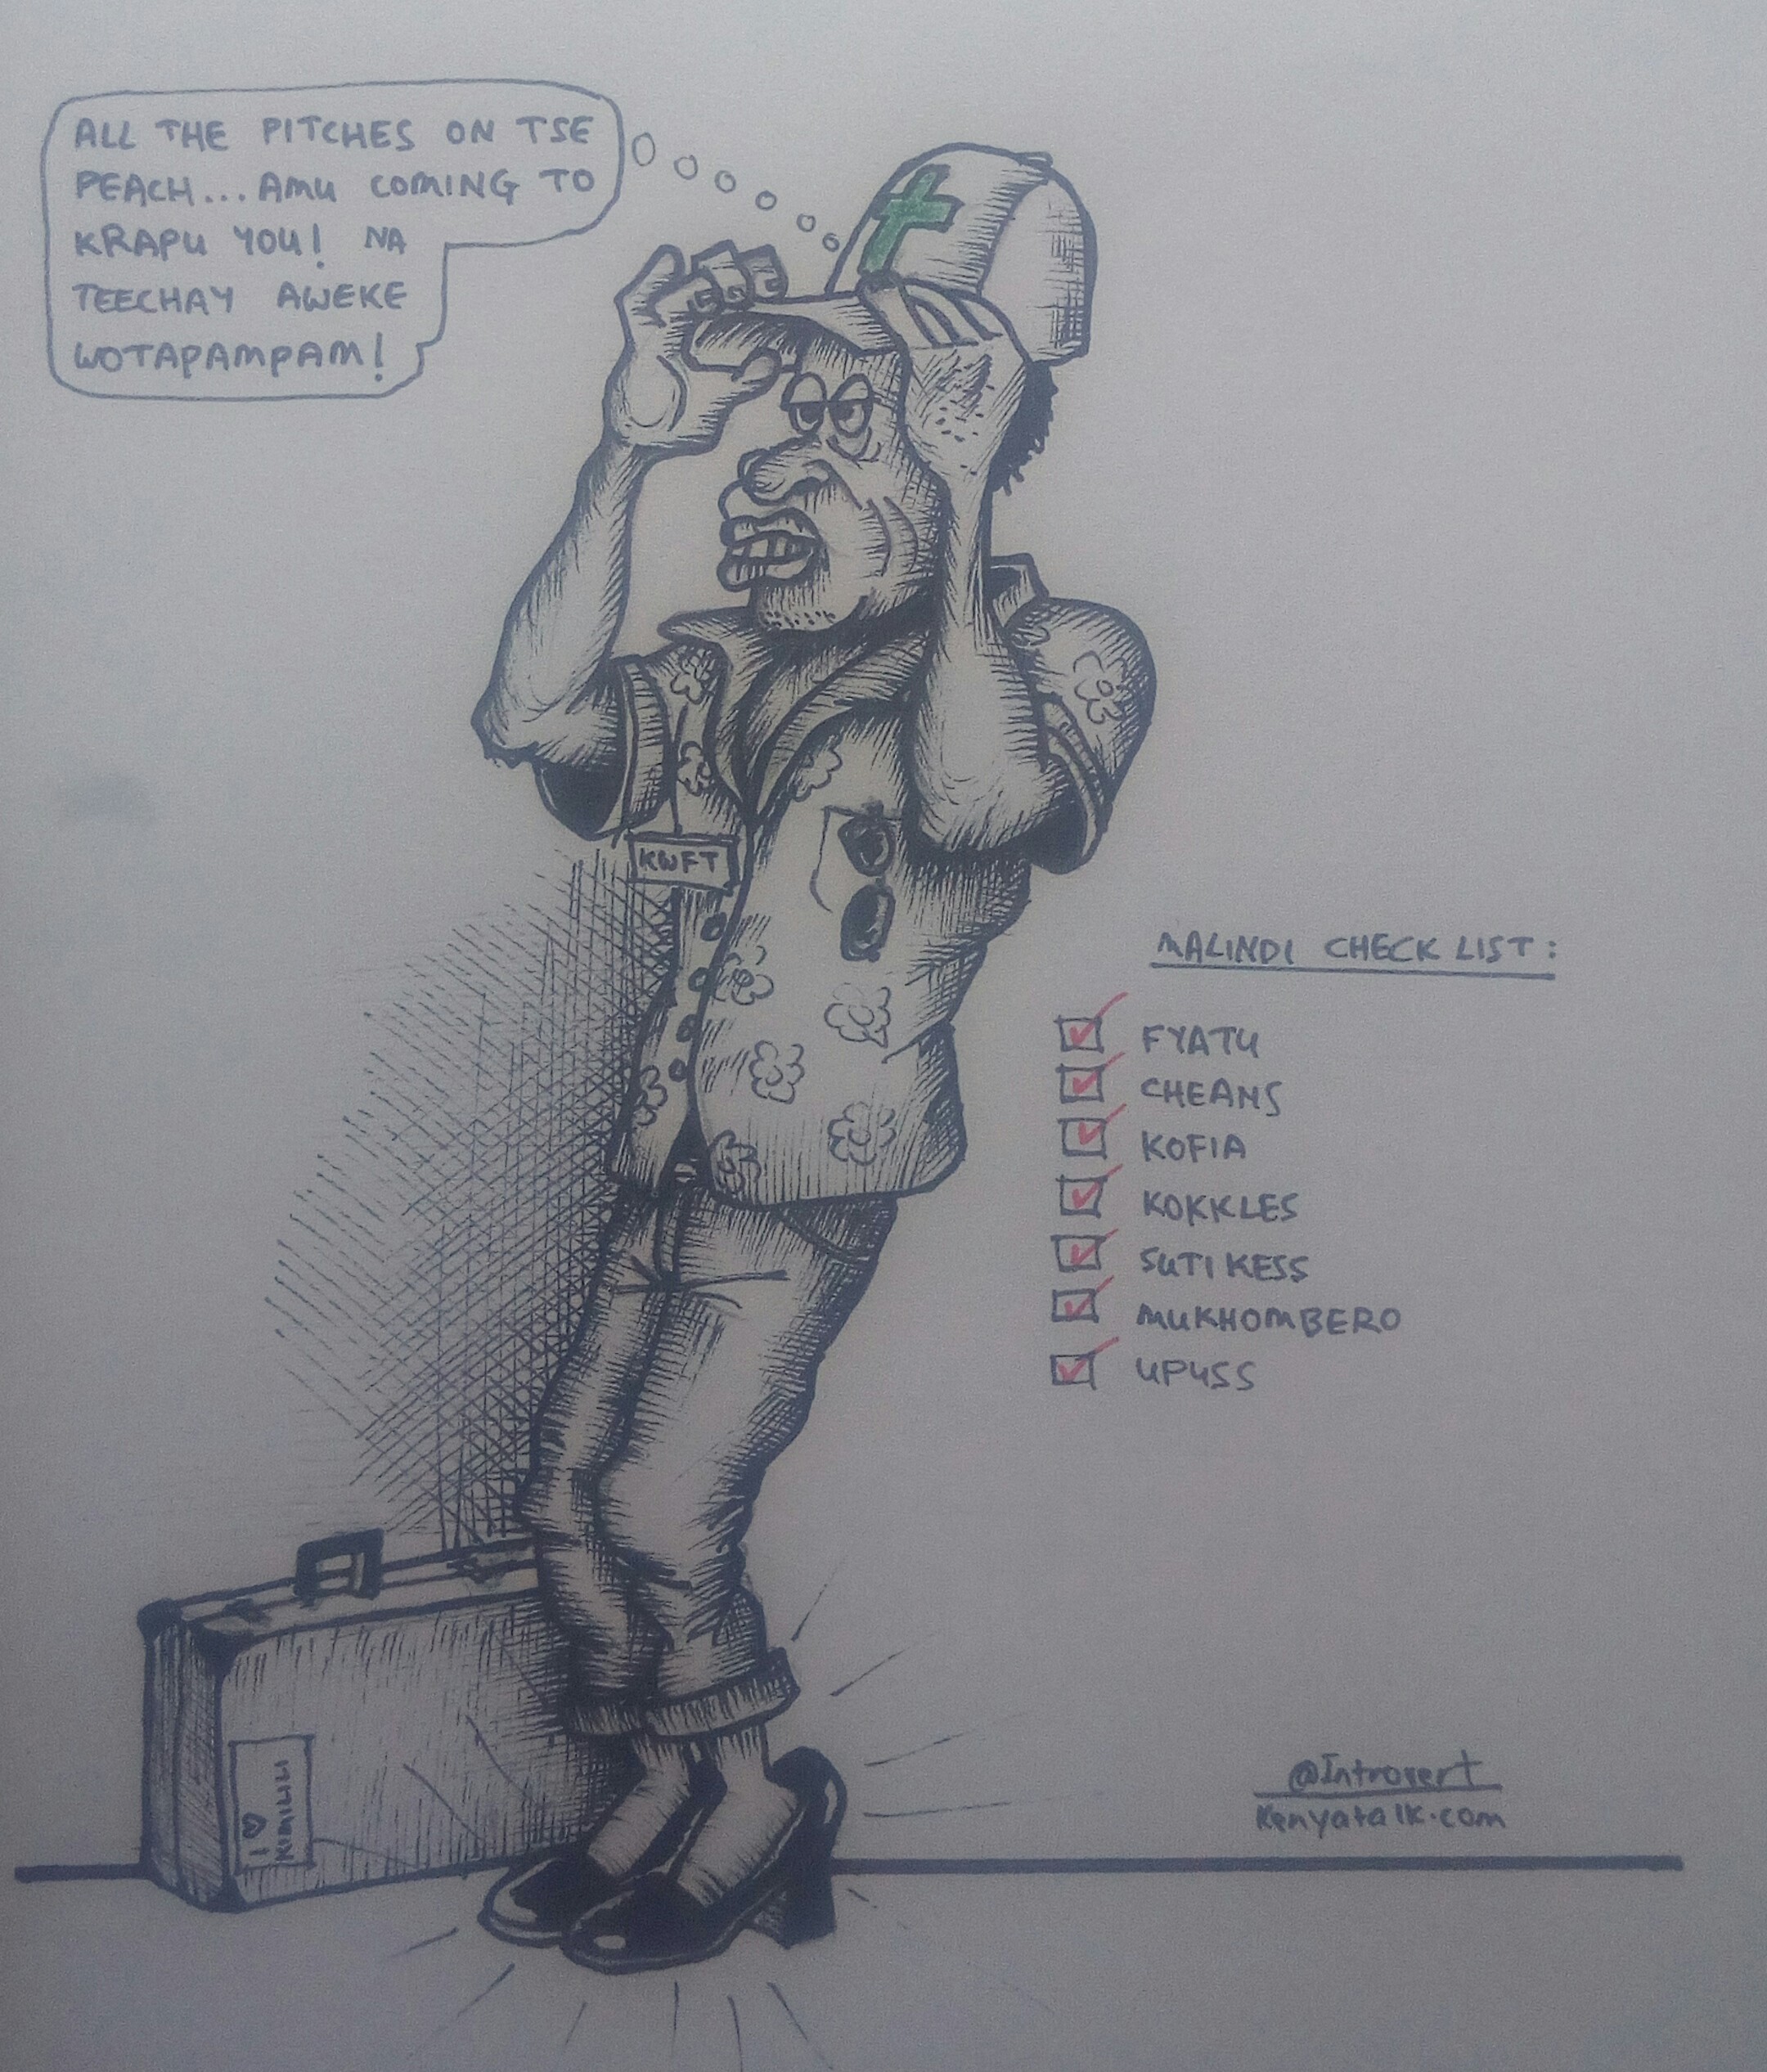 ALL THE PITCHES ON TSE
PEACH...AMU COMING TO
KRAPU YOU! NA
TEECHAY AWEKE
WOTAPAMPAM!
KWFT
MALINDI CHECK LIST:
FYATU
CHEANS
KOFIA
KOKKLES
SUTI KESS
MUKHOMBERO
UPUSS
I ♡
KIMILILI
@Introvert
Kenyatalk.com